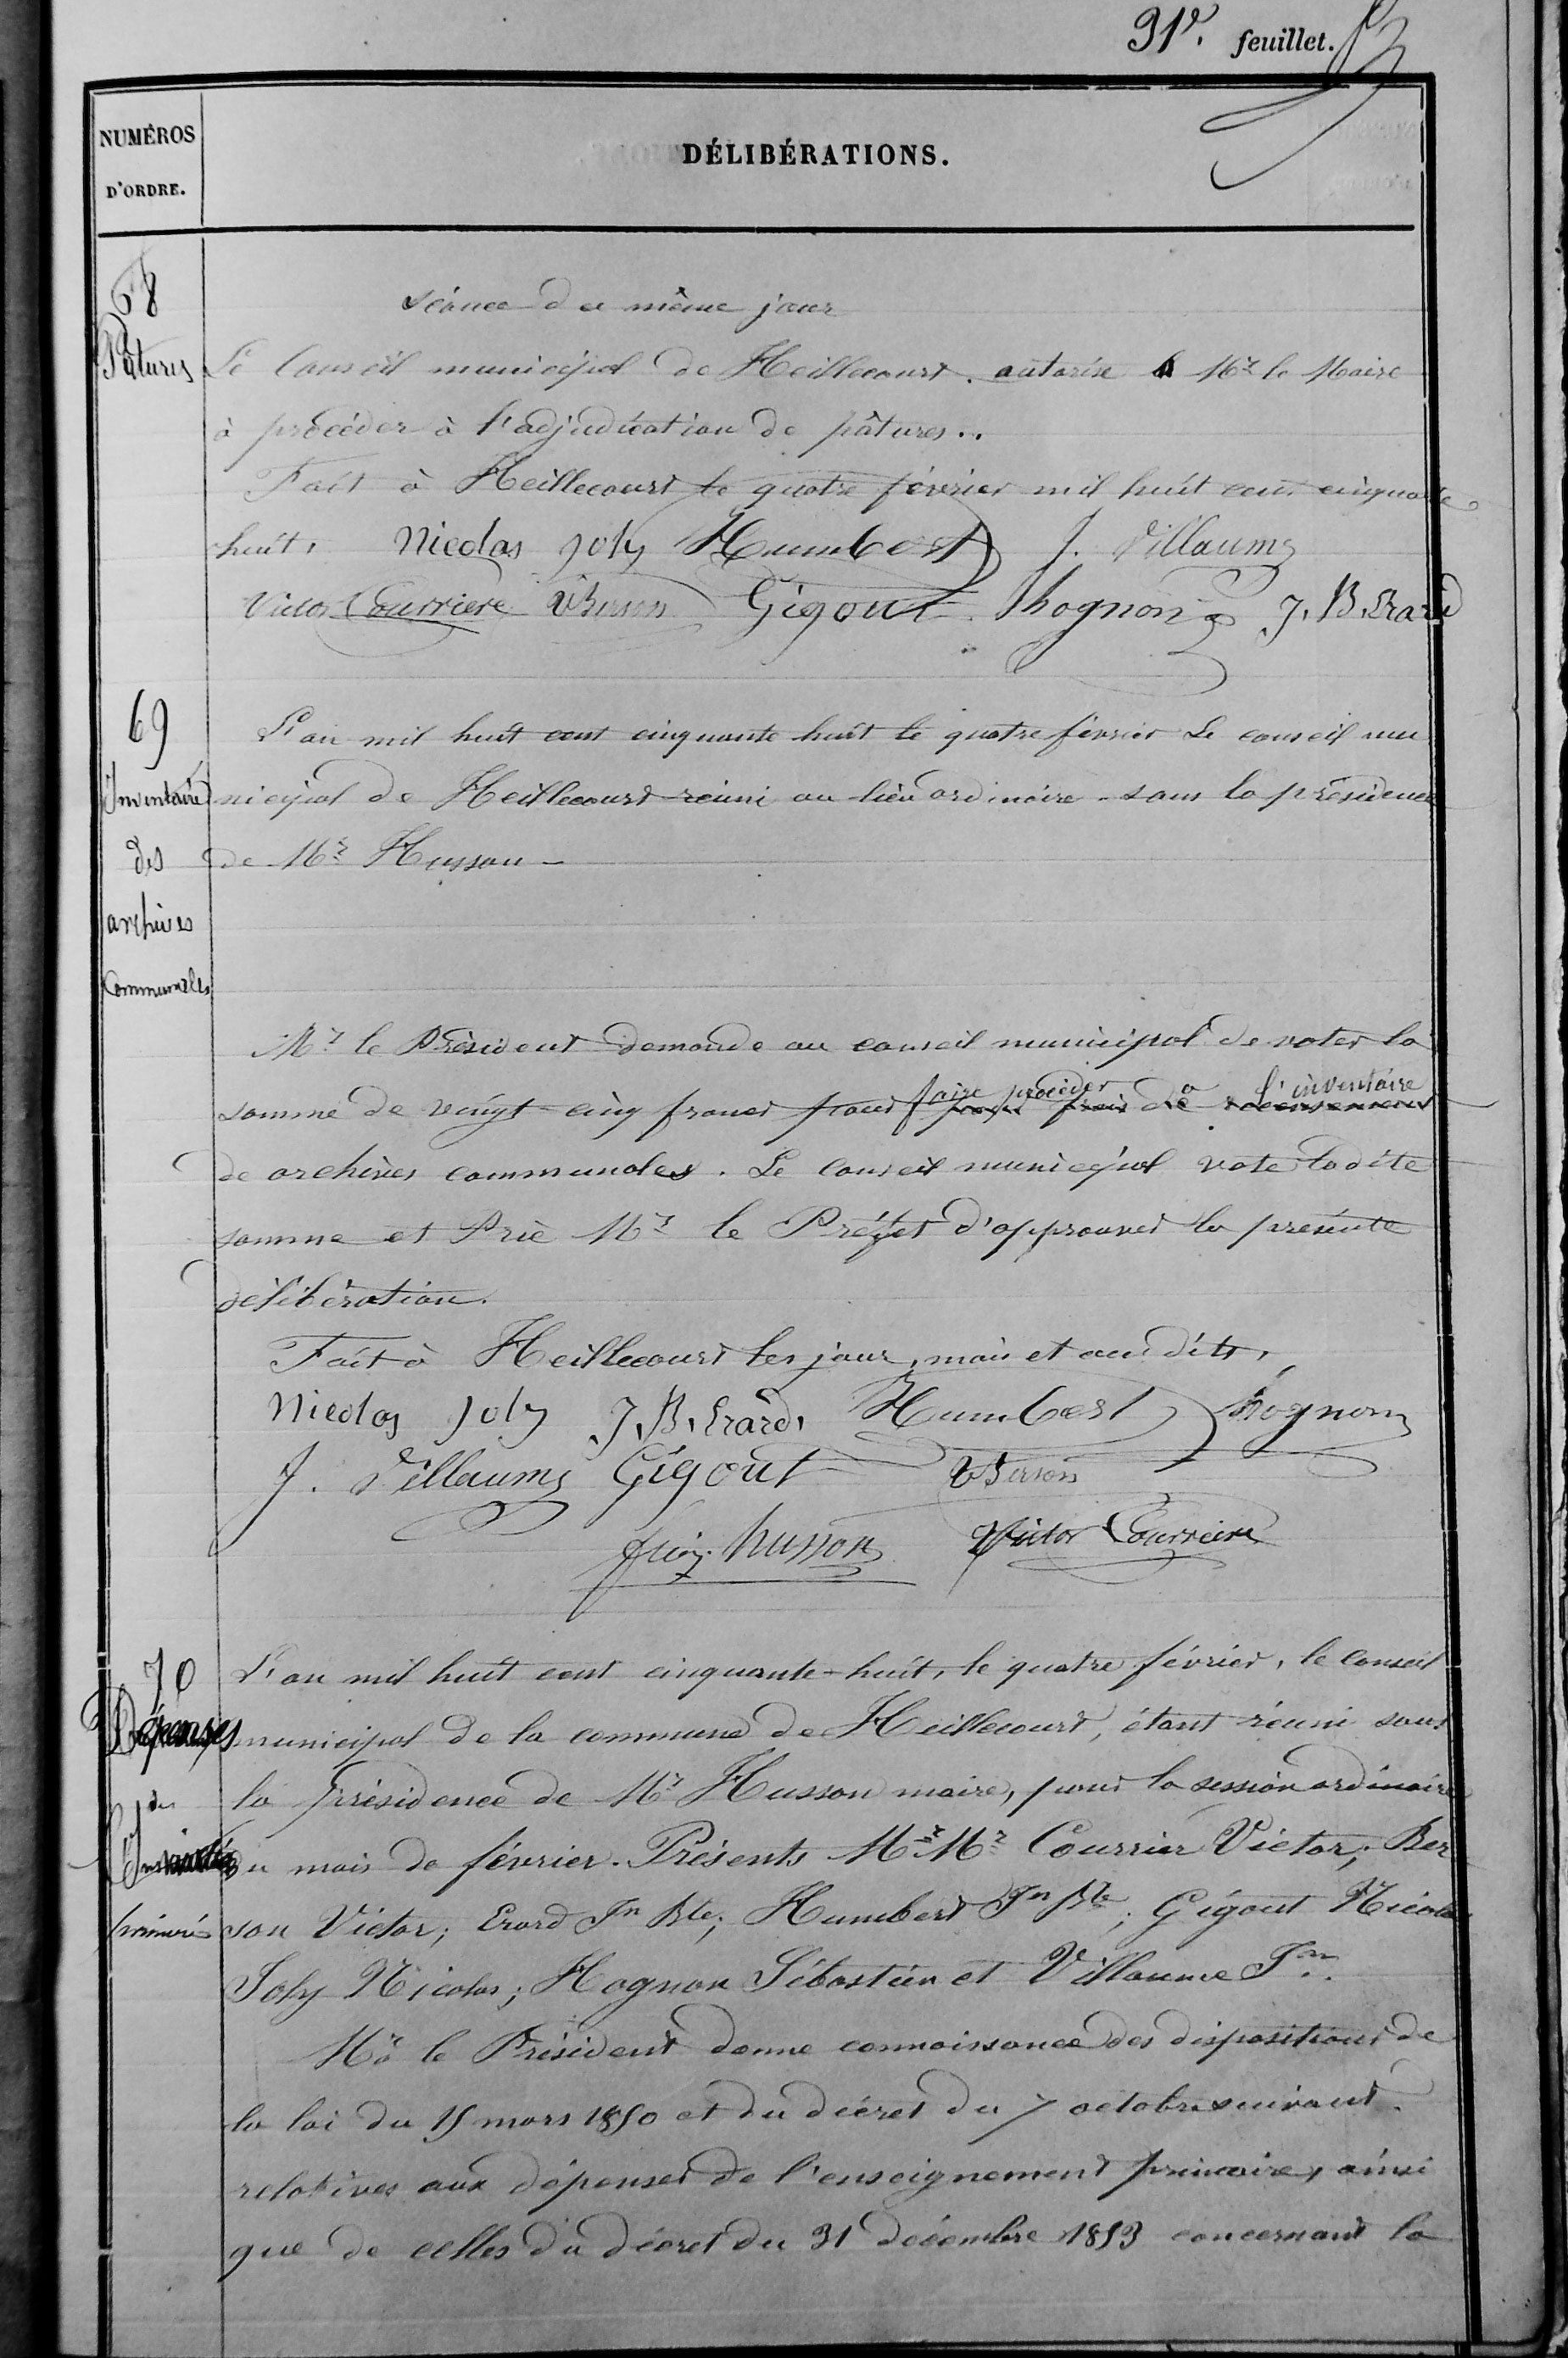 31e. feuillet.
NUMÉROS
D'ORDRE.
DÉLIBÉRATIONS.
68
Pâtures
Séance du même jour
Le Conseil municipal de Heillecourt. autorise Mr le Maire
à procéder à l'adjudication de pâtures..
Fait à Heillecourt le quatre février mil huit cent cinquante
huit. Nicolas Joly Humbert J. Villaume
Victor Courriere VBerson Gigout. Hognon J. B. Erard
69
Inventaire
des
archives
Communales
L'an mil huit cent cinquante huit le quatre février Le conseil mu
nicipal de Heillecourt réuni au lieu ordinaire - sous la présidence
de Mr Husson -
Mr le Président demande au conseil municipal de voter la
somme de vingt-cinq francs pour faire procéder à l'inventaire
de archives communales. Le Conseil municipal vote ladite
somme et Prie Mr le Préfet d'approuver la présente
délibération.
Fait à Heillecourt les jour, mois et an dits,
Nicolas Joly J. B. Erard, Humbert Hognon
J. Villaume Gigout VBerson
husson Victor Courriere
70
Dépenses
de
l'Instruction
primaire
L'an mil huit cent cinquante-huit, le quatre février, le Conseil
municipal de la commune de Heillecourt, étant réuni sous
la présidence de Mr Husson maire, pour la session ordinaire
du mois de février. Présents Mr Mr Courrier Victor; Ber
son Victor; Erard Jn Bte; Humbert Jn Bte; Gigout Nicolas
Joly Nicolas; Hognon Sébastien et Villaume Jn.
Mr le Président donne connaissance des dispositions de
la loi du 15 mars 1850 et du décret du 7 octobre suivant.
relatives aux dépenses de l'enseignement primaire, ainsi
que de celles du décret du 31 décembre 1853 concernant la